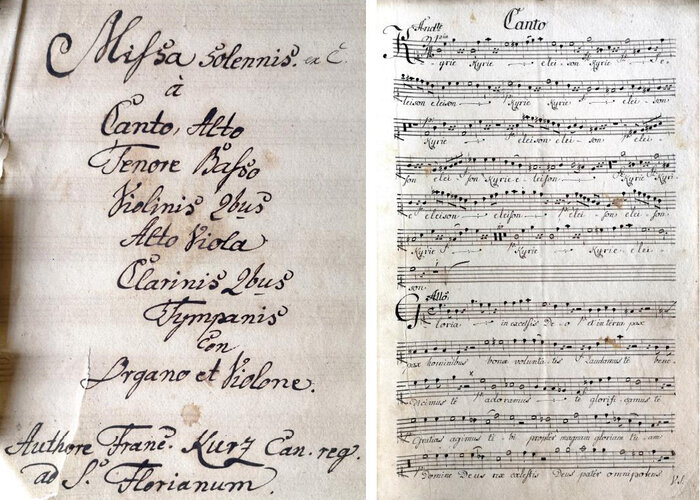 Missa solennis. ex C.
à
Canto, Alto
Tenore Basso
Violinis 2bus
Alto Viola
Clarinis 2bus
Tympanis
con
Organo et Violone.
Authore Franc. Kurz Can. reg.
ad S. Florianum.
Canto
Andte
Kyrie Kyrie elei son Kyrie e
leison eleison Kyrie Kyrie elei
Kyrie elei son Kyrie elei
son elei son Kyrie eleison Kyrie Kyri
e eleison eleison elei son elei son
Kyrie Kyrie Kyrie elei
son
Allo
Gloria in excelsis deo et in terra pax
pax hominibus bonæ volunta tis Laudamus te bene
dicimus te adoramus te glorifi camus te
Gratias agimus ti bi propter magnam gloriam tu am
Domine Deus rex cœlestis Deus pater omnipotens
V.S.